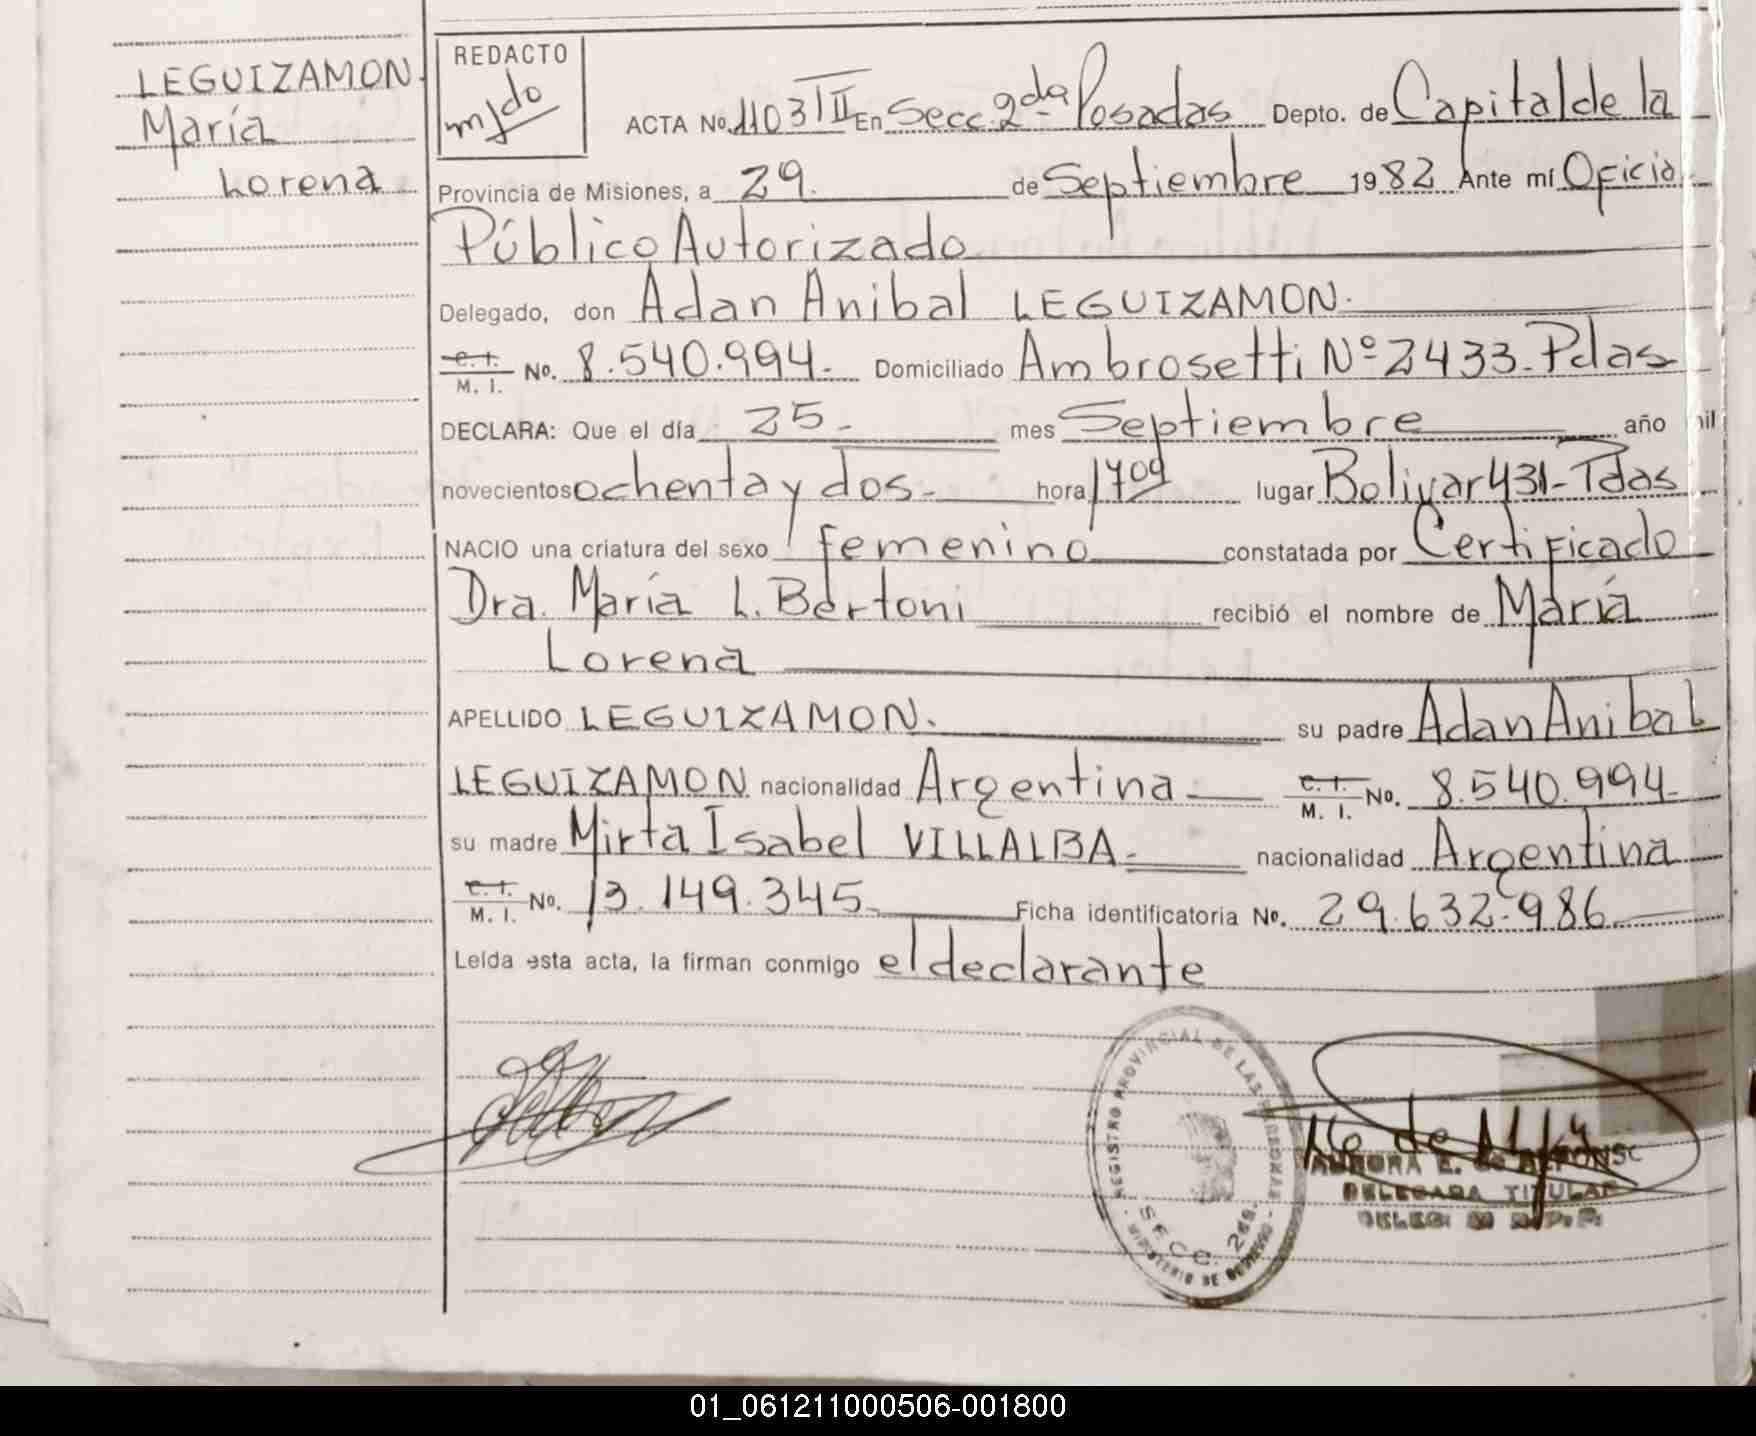 LEGUIZAMON
María
Lorena
REDACTO
ACTA No. 1103 TII En Secc. 2da Posadas Depto. de Capital de la
Provincia de Misiones, a 29. de Septiembre 1982 Ante mí Oficial
Público Autorizado
Delegado, don Adan Anibal LEGUIZAMON.
C. I. M. I. No. 8.540.994.- Domiciliado Ambrosetti Nº 2433-Pdas
DECLARA: Que el día 25.- mes Septiembre año mil
novecientos ochenta y dos.- hora 1709 lugar Bolivar 431-Pdas
NACIO una criatura del sexo femenino constatada por Certificado
Dra. María L. Bertoni recibió el nombre de María
Lorena
APELLIDO LEGUIZAMON. su padre Adan Anibal
LEGUIZAMON nacionalidad Argentina C. I. M. I. No. 8.540.994-
su madre Mirta Isabel VILLALBA.- nacionalidad Argentina
C. I. M. I. No. 13.149.345. Ficha identificatoria No. 29.632.986
Leída esta acta, la firman conmigo el declarante
REGISTRO PROVINCIAL DE LAS PERSONAS
SECC. 2da.
MINISTERIO DE GOBIERNO
AURORA E. de
DELEGADA TITULAR
01_061211000506-001800